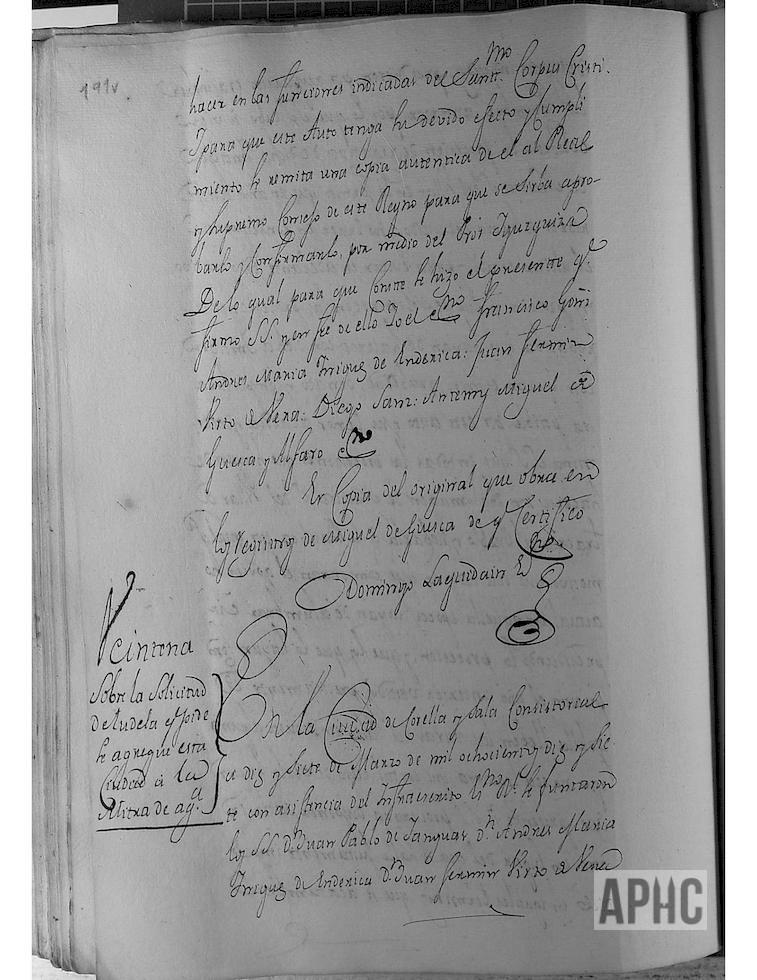 191v.
hacer en las funciones indicadas del Santt.mo Corpus Cristi.
Ypara que este Auto tenga su devido efecto y Cumpli
miento se remita una copia autentica de el al Real
y Supremo Consejo de este Reyno para que se sirba apro-
barlo y Confirmarlo, por medio del Pror Yguzquiza
De lo qual para que Conste se hizo el presentte qe
firmo SS. y en fee de ello Yo el esno Francisco Goñi
Andres Maria Yñiguez de Enderica: Juan Fermin
Virto de Vera: Diego Sanz: Antemy Miguel de
Guesca y Alfaro esno
Es Copia del original que obra en
los registros de Miguel de Guesca de q Certifico
Domingo Laquidain Esno
Veintena
Sobre la Solicitud
de tudela qe pide
se agregue esta
Ciudad a la
Mitra de aqa
En la Ciudad de Corella y Sala Consistorial
a diez y Siete de Marzo de mil ochocientos diez y Sie-
te con asistencia del Infraescrito Esno Rl se juntaron
los SS. dn Juan Pablo de Sanguas dn Andres Maria
Yñiguez de Enderica dn Juan Fermin Virto de Vera
APHC